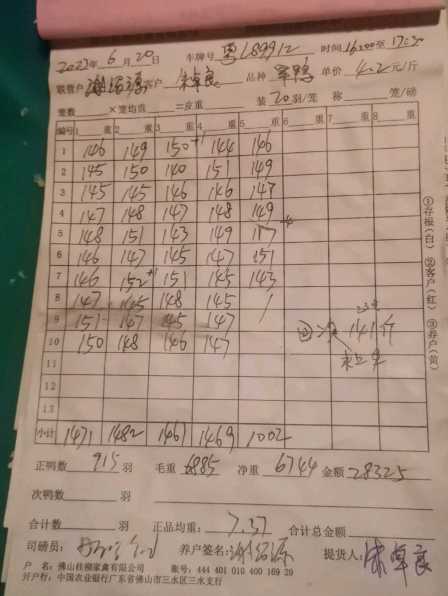 2023年 6月 20日 车牌号 粤L89912 时间16:00至17:20
联营户 客户 朱卓良 品种 单价 4.2 元/斤
笼数 ×笼均重 =皮重 装 20 羽/笼 称 笼/磅
编号 1 重 2 重 3 重 4 重 5 重 6 重 7 重 8 重
1 146 149 150 +1 144 146
2 145 150 140 151 149
3 145 145 146 146 147
4 147 148 147 148 149
5 148 151 143 149 117 +4
6 146 147 145 147 151
7 146 152 +1 151 145 143
8 147 145 148 145 /
9 151 147 145 147
10 150 148 146 147
11
12
13
141斤
小计 1471 1482 1461 1469 1002
正鸭数 915 羽 毛重 6885 净重 6744 金额 28325
次鸭数 羽
合计数 羽 正品均重: 7.37 合计总金额
司磅员: 养户签名: 提货人: 朱卓良
户 名: 佛山桂柳家禽有限公司 账号: 444 401 010 400 169 29
开户行: 中国农业银行广东省佛山市三水区三水支行
①存根(白) ②客户(红) ③养户(黄)